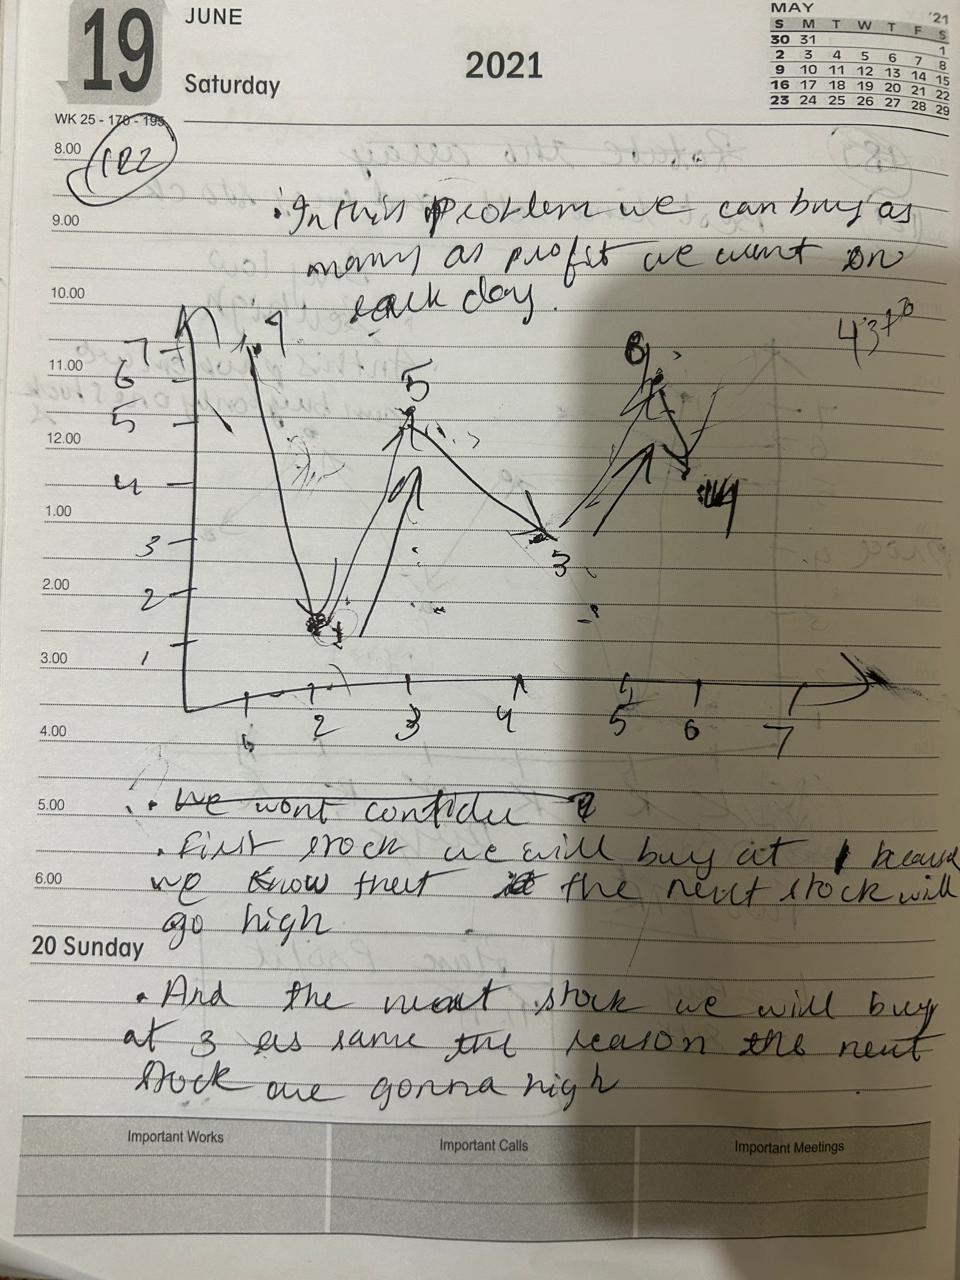 19
JUNE
Saturday
2021
MAY '21
S M T W T F S
30 31 1
2 3 4 5 6 7 8
9 10 11 12 13 14 15
16 17 18 19 20 21 22
23 24 25 26 27 28 29
WK 25 - 170 - 195
8.00
122
· In this problem we can buy as
9.00
many as profit we want on
10.00
each day.
7
6
5
4
3
2
1
11.00
12.00
1.00
2.00
3.00
4.00
7
1
5
3
6
4
4 3 7
1 2 3 4 5 6 7
5.00
· We wont confidee
· First stock we will buy at 1 because
6.00
we know thet the next stock will
go high
20 Sunday
· And the next stock we will buy
at 3 as same the reason the next
stock are gonna high
Important Works
Important Calls
Important Meetings